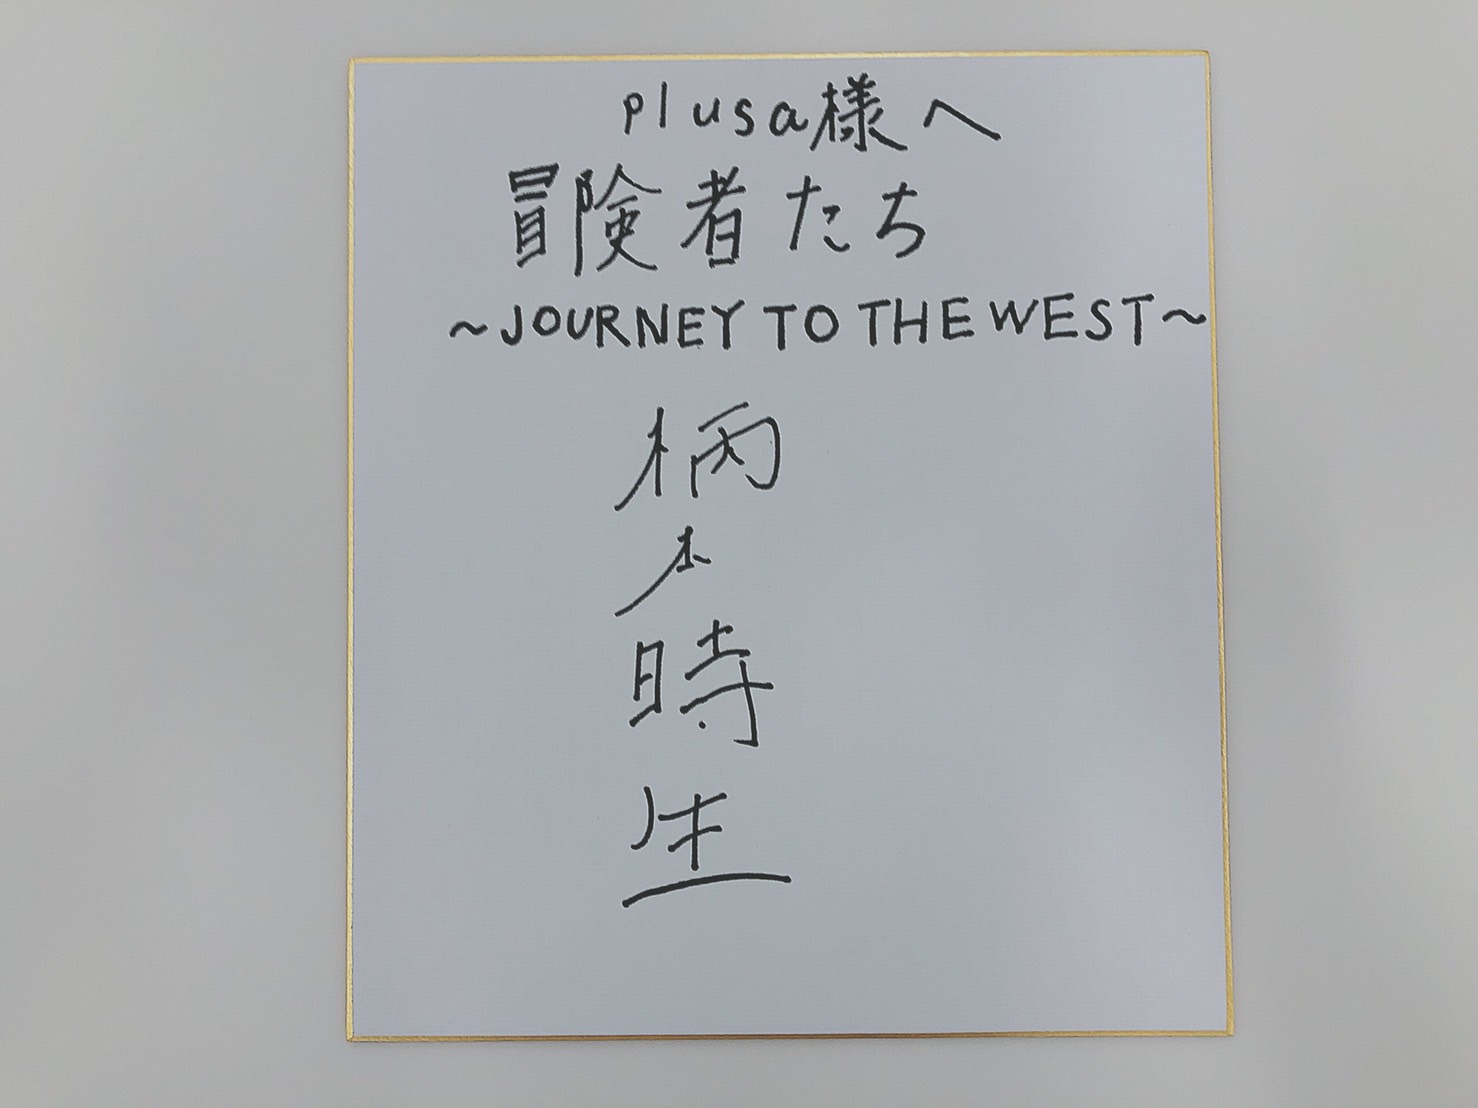 plusa様へ
冒険者たち
～JOURNEY TO THE WEST～
柄
本
時
生